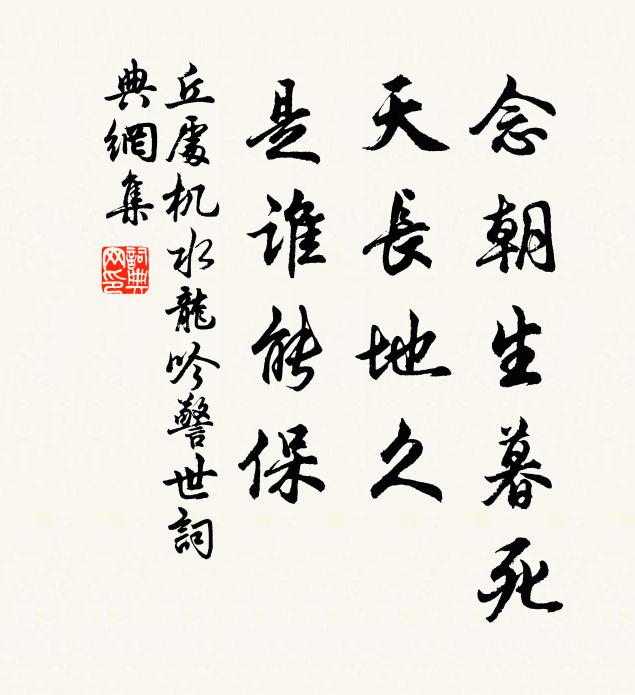 念朝生暮死
天長地久
是誰能保
丘處机水龍吟警世詞
典網集
詞典
网印